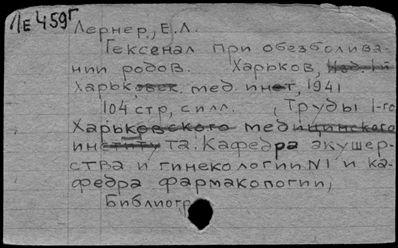 Пе 459Г
Лернер, Е.Л.
Гексенал при обезболива-
нии родов. Харьков, Изд. 1й
Харьковск. мед. инст, 1941
104 стр, с илл. (Труды 1-го
Харьковского медицинского
институ та. Кафедра акушер-
ства и гинекологии N1 и ка-
федра фармакологии,
Библиогр